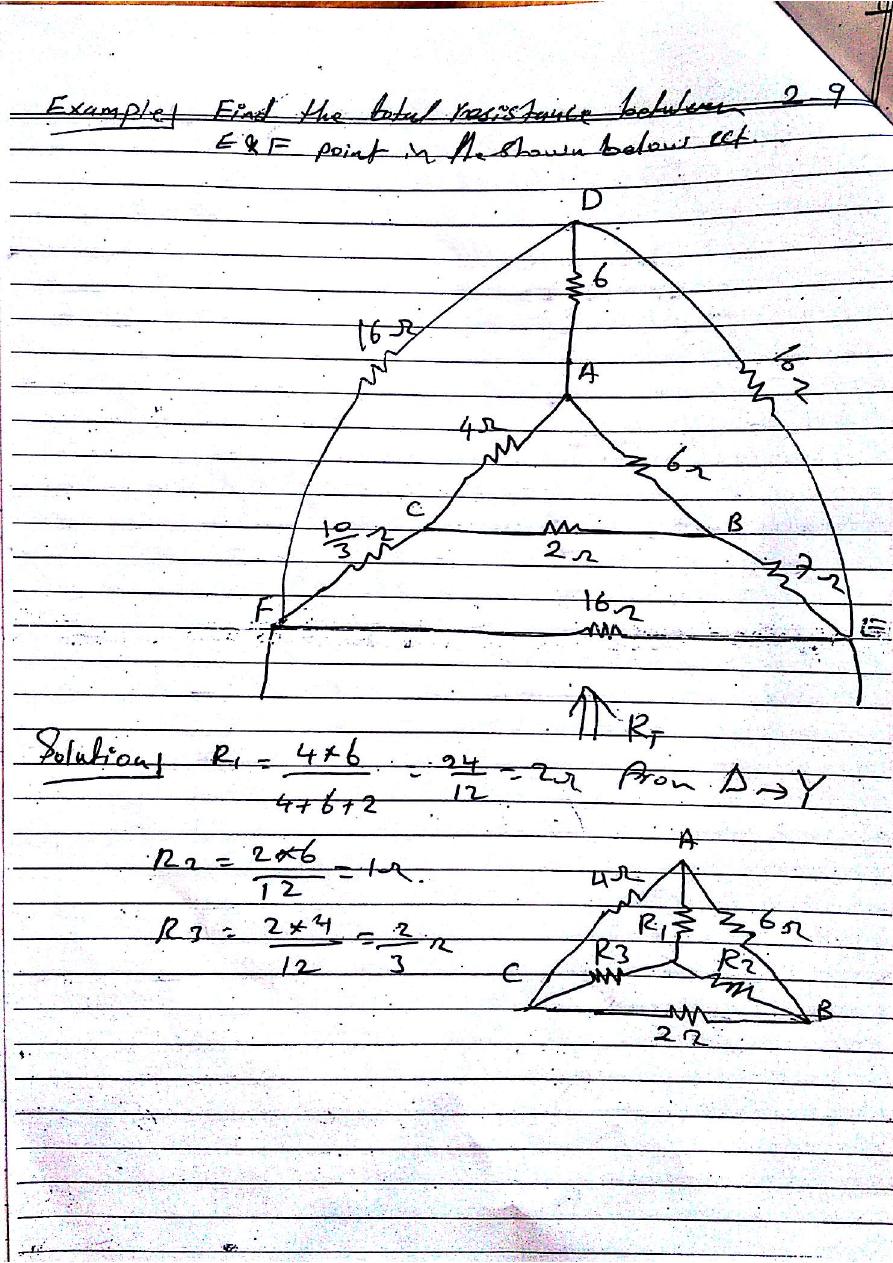 Example Find the total resistance between 2-9
E & F point in the shown below cct.
D
6
16Ω
A
4Ω
6Ω
C
B
10/3 Ω
2Ω
7Ω
16Ω
F
E
R_T
Solution R1 = 4*6/4+6+2 = 24/12 = 2Ω from Δ→Y
R2 = 2*6/12 = 1Ω.
R3 = 2*4/12 = 2/3 Ω
A
4Ω
R1
6Ω
R3
R2
C
B
2Ω